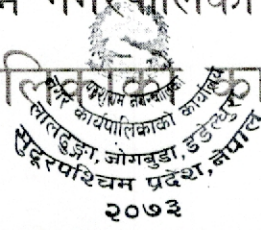 नगरपालिका
लिकाको का
परशुराम नगरपालिका
नगर कार्यपालिकाको कार्यालय
लालढुङ्गा, जोगबुडा, डडेल्धुरा
सुदूरपश्चिम प्रदेश, नेपाल
२०७३